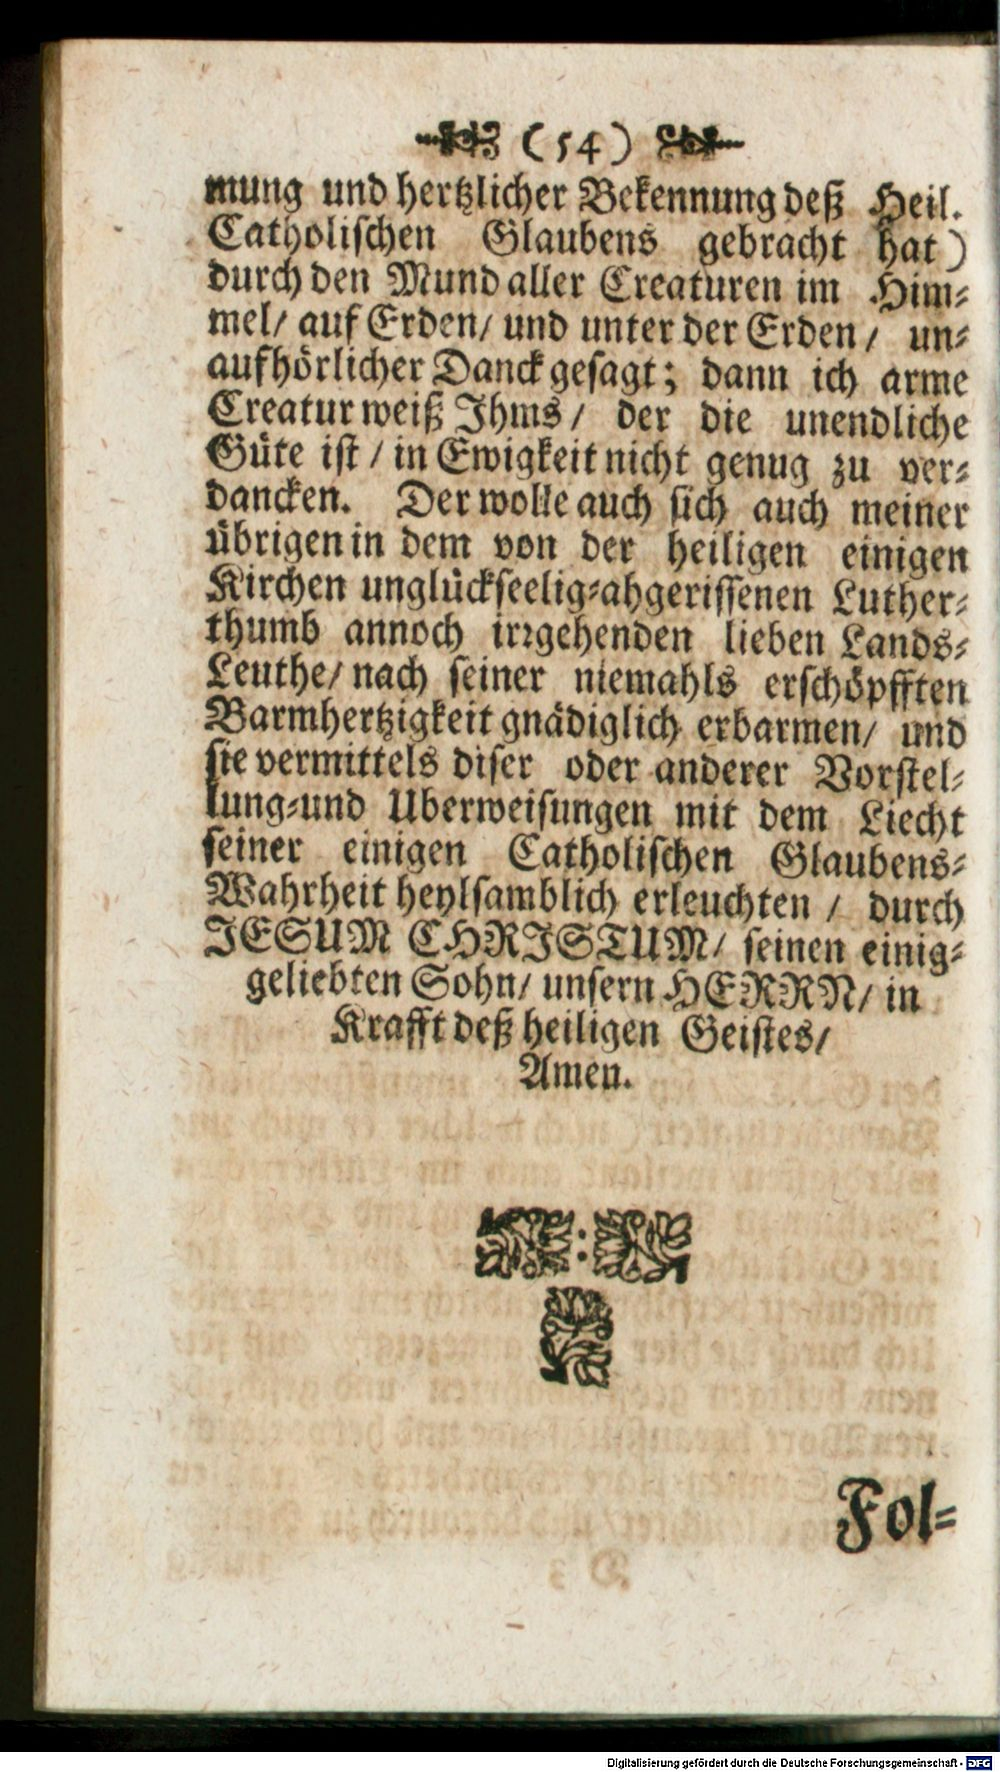 (54)
mung und hertzlicher Bekennung deß Heil.
Catholischen Glaubens gebracht hat)
durch den Mund aller Creaturen im Him-
mel/ auf Erden/ und unter der Erden/ un-
aufhörlicher Danck gesagt; dann ich arme
Creatur weiß Ihms/ der die unendliche
Güte ist/ in Ewigkeit nicht genug zu ver-
dancken. Der wolle auch sich auch meiner
übrigen in dem von der heiligen einigen
Kirchen unglückseelig-ahgerissenen Luther-
thumb annoch irrgehenden lieben Lands-
Leuthe/ nach seiner niemahls erschöpfften
Barmhertzigkeit gnädiglich erbarmen/ und
sie vermittels diser oder anderer Vorstel-
lung-und Uberweisungen mit dem Liecht
seiner einigen Catholischen Glaubens-
Wahrheit heylsamblich erleuchten/ durch
JESUM CHRISTUM/ seinen einig-
geliebten Sohn/ unsern HERRN/ in
Krafft deß heiligen Geistes/
Amen.
Fol-
Digitalisierung gefördert durch die Deutsche Forschungsgemeinschaft - DFG